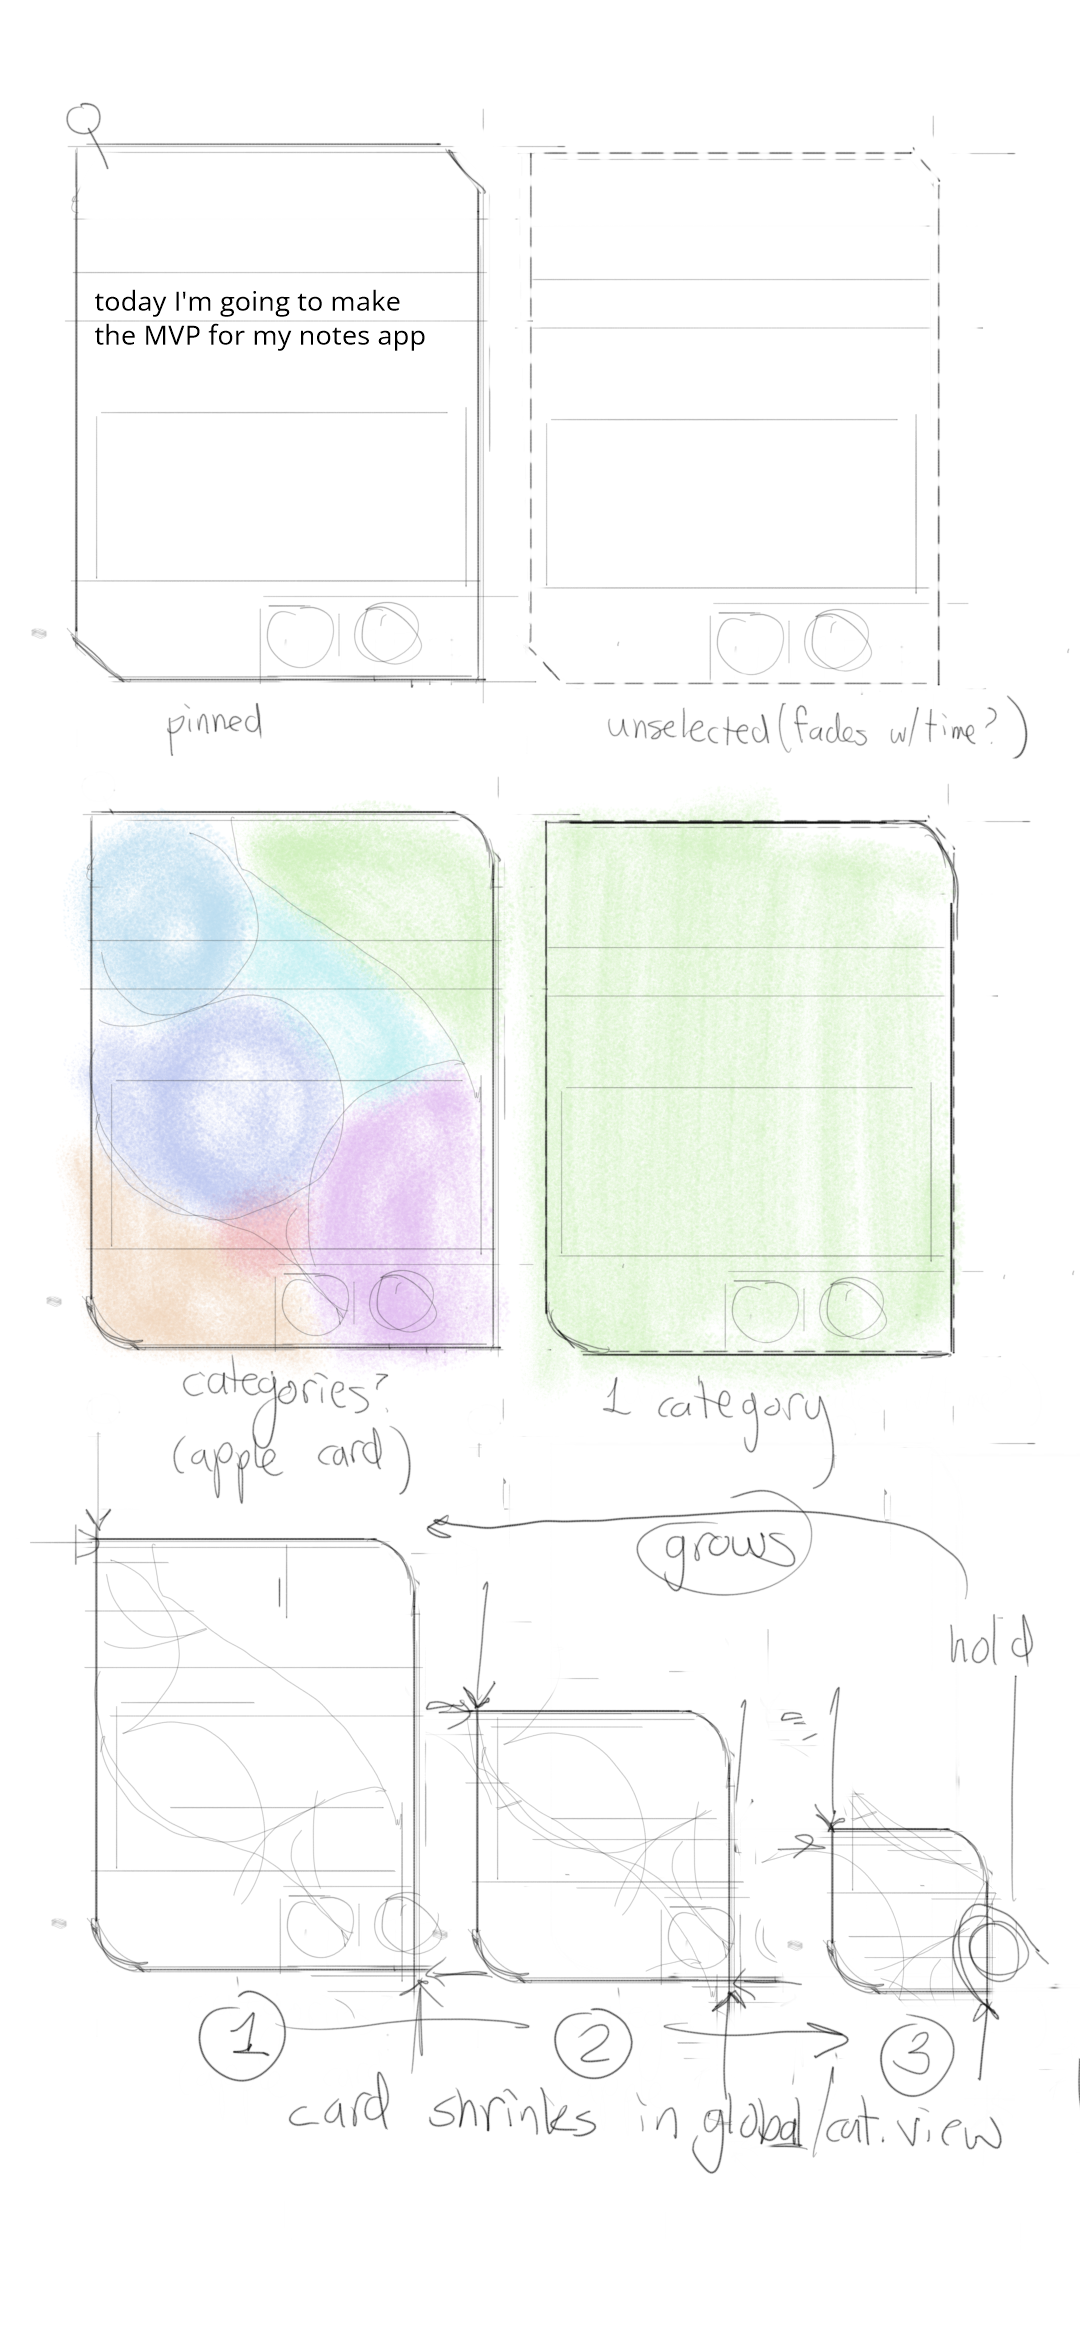 today I'm going to make
the MVP for my notes app
pinned
unselected (fades w/time?)
categories?
(apple card)
1 category
grows
hold
1
2
3
card shrinks in global/cat. view